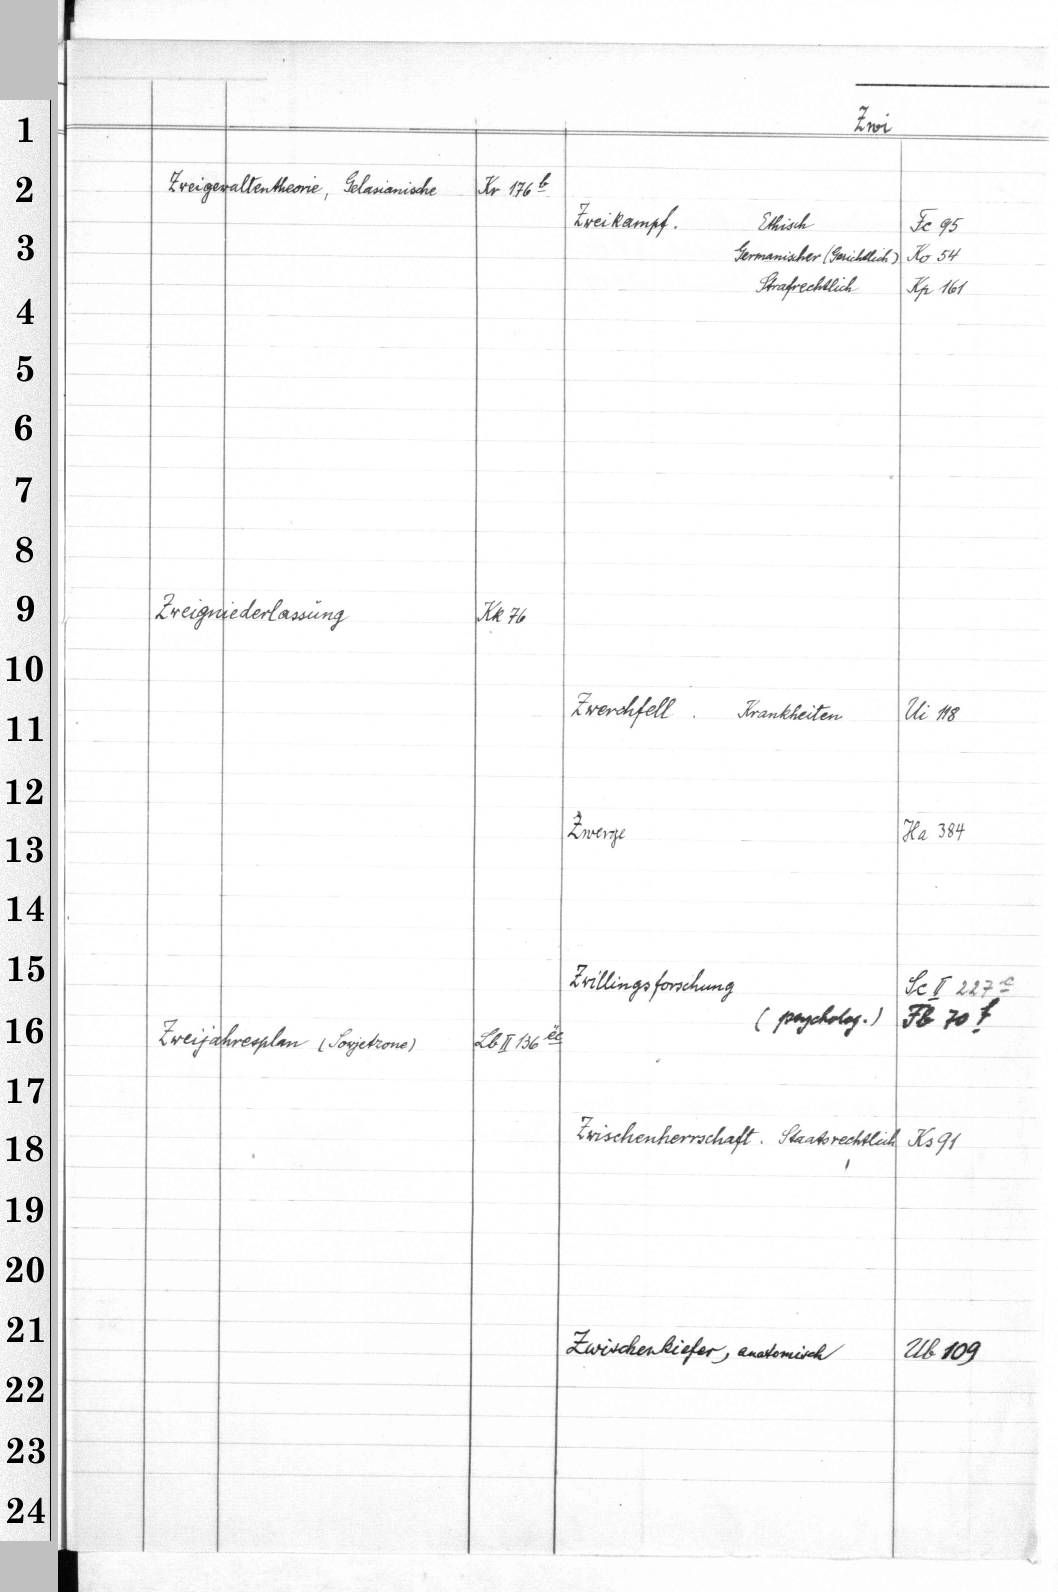 Zwi
Zweigewaltentheorie, Gelasianische Kr 176 b
Zweigniederlassung Kk 76
Zweijahresplan (Sowjetzone) Lb II 136
Zweikampf. Ethisch Fc 95
Germanischer (Gerichtlich) Ko 54
Strafrechtlich Kp 161
Zwerchfell. Krankheiten Ui 118
Zwerge Ha 384
Zwillingsforschung Sc II 227 c
(psycholog.) Fb 70 f
Zwischenherrschaft. Staatsrechtlich Ks 91
Zwischenkiefer, anatomisch Ub 109
1
2
3
4
5
6
7
8
9
10
11
12
13
14
15
16
17
18
19
20
21
22
23
24